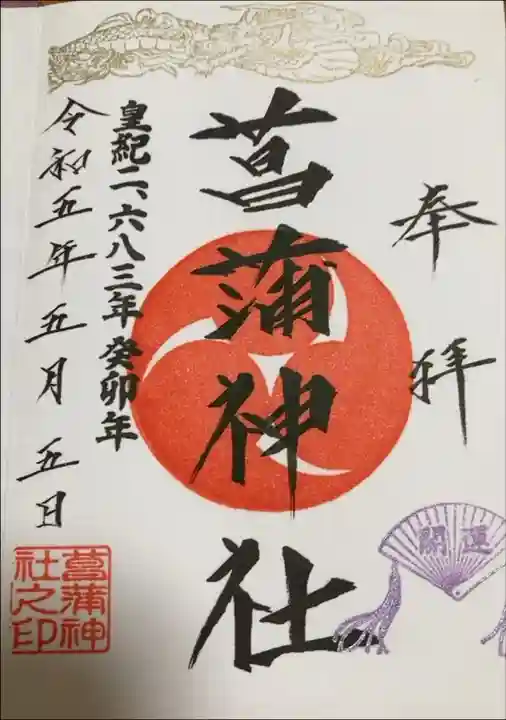 奉拝
菖蒲神社
皇紀二、六八三年癸卯年
令和五年五月五日
開運
菖蒲神
社之印